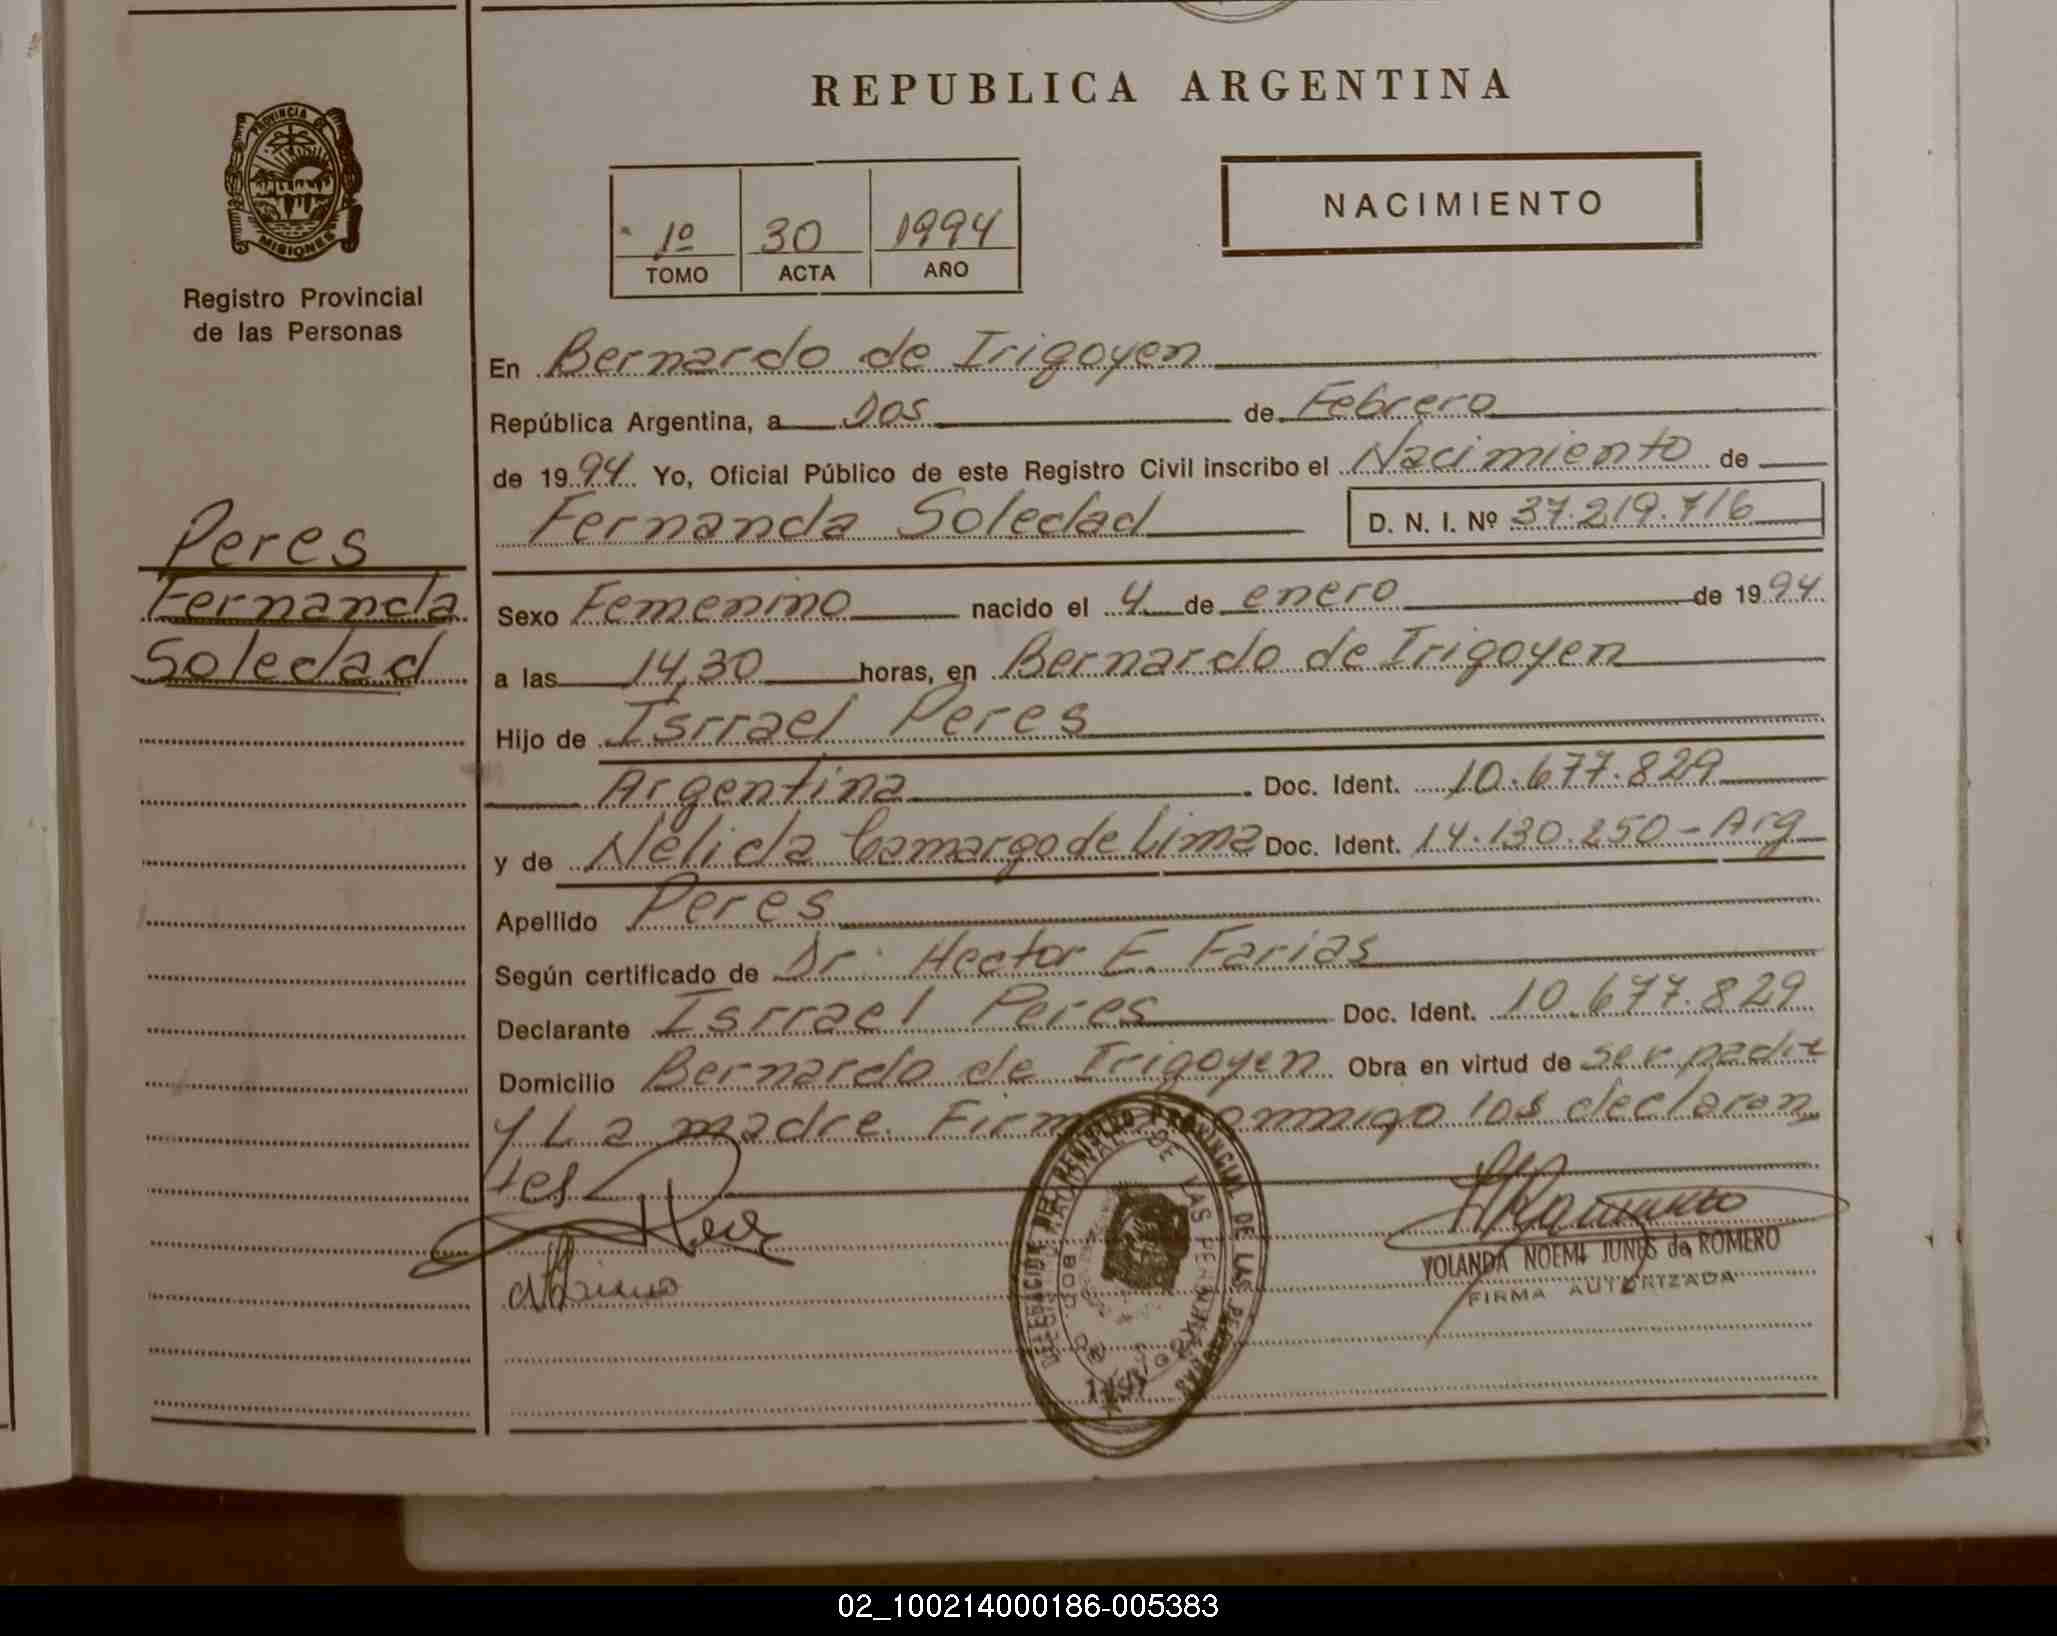 REPUBLICA ARGENTINA
PROVINCIA DE
MISIONES
Registro Provincial
de las Personas
1º 30 1994
TOMO ACTA AÑO
NACIMIENTO
En Bernardo de Irigoyen
República Argentina, a Dos de Febrero
de 1994 Yo, Oficial Público de este Registro Civil inscribo el Nacimiento de
Fernanda Soledad D. N. I. Nº 37.219.716
Peres
Fernanda
Soledad
Sexo Femenino nacido el 4 de enero de 1994
a las 14,30 horas, en Bernardo de Irigoyen
Hijo de Isrrael Peres
Argentina Doc. Ident. 10.677.829
y de Nelida Camargo de Lima Doc. Ident. 14.130.250 - Arg
Apellido Peres
Según certificado de Dr. Hector E. Farias
Declarante Isrrael Peres Doc. Ident. 10.677.829
Domicilio Bernardo de Irigoyen Obra en virtud de ser padre
y La madre. Firman conmigo los declaran
tes
YOLANDA NOEMI JUNES de ROMERO
FIRMA AUTORIZADA
PROVINCIAL DE LAS PERSONAS
02_100214000186-005383